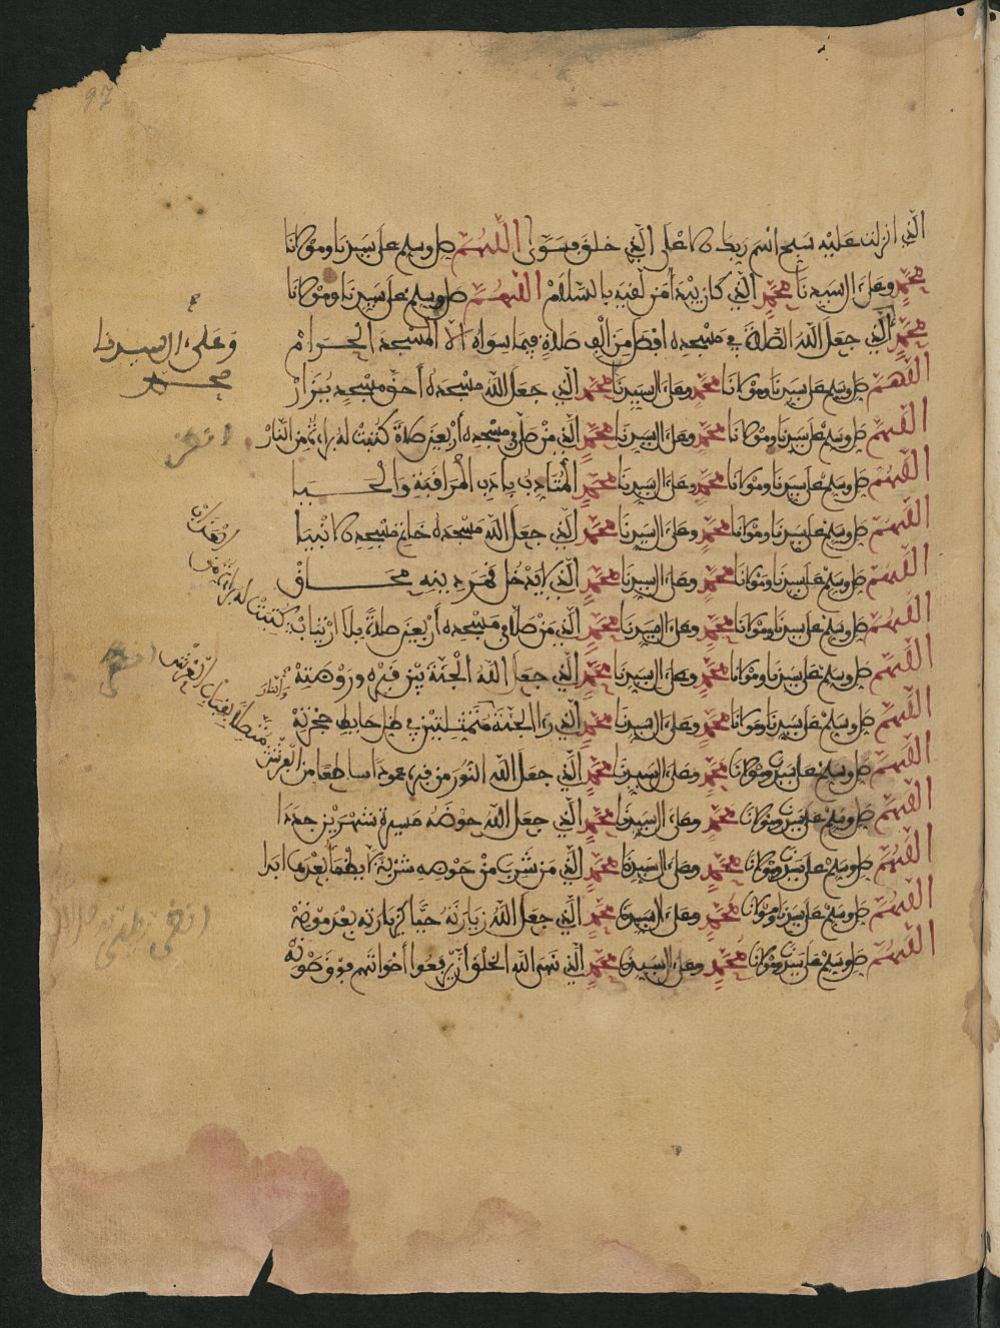 97
الذي انزلت عليه سبح اسم ربك الاعلى الذي خلق فسوى اللهم صل وسلم على سيدنا ومولانا
محمد وعلى ال سيدنا محمد الذي كان يبدأ من لقيه بالسلام اللهم صل وسلم على سيدنا ومولانا
محمد الذي جعل الله الصلاة في مسجده افضل من الف صلاة فيما سواه الا المسجد الحرام
وعلى ال سيدنا
محمد
اللهم صل وسلم على سيدنا ومولانا محمد وعلى ال سيدنا محمد الذي جعل الله مسجده أحق مسجد يزار
اللهم صل وسلم على سيدنا ومولانا محمد وعلى ال سيدنا محمد الذي من صلى في مسجده أربعين صلاة كتبت له براءة من النار
اللهم صل وسلم على سيدنا ومولانا محمد وعلى ال سيدنا محمد المتادب بادب المراقبة والحيا
اللهم صل وسلم على سيدنا ومولانا محمد وعلى ال سيدنا محمد الذي جعل الله مسجده خاتم مسجد الانبيا
اللهم صل وسلم على سيدنا ومولانا محمد وعلى ال سيدنا محمد الذي لا يدخل في حرم دينه
اللهم صل وسلم على سيدنا ومولانا محمد وعلى ال سيدنا محمد الذي من صلى في مسجده أربعين صلاة بلا ارتياب كتبت له براءة من
والنار
اللهم صل وسلم على سيدنا ومولانا محمد وعلى ال سيدنا محمد الذي جعل الله الجنة بين قبره وروضته
اللهم صل وسلم على سيدنا ومولانا محمد وعلى ال سيدنا محمد الذي رءا الجنة متمثلتين في حايط حجرته
اللهم صل وسلم على سيدنا ومولانا محمد وعلى ال سيدنا محمد الذي جعل الله النور من قبره عمودا ساطعا من العرش
اللهم صل وسلم على سيدنا ومولانا محمد وعلى ال سيدنا محمد الذي جعل الله حوضه مسيرة شهرين جددا
اللهم صل وسلم على سيدنا ومولانا محمد وعلى ال سيدنا محمد الذي من شرب من حوضه شربة لا يظمأ بعدها ابدا
اللهم صل وسلم على سيدنا ومولانا محمد وعلى ال سيدنا محمد الذي جعل الله زيارته حيا كزيارته بعد موته
اللهم صل وسلم على سيدنا ومولانا محمد وعلى ال سيدنا محمد الذي نهى الله الخلق أن يرفعوا أصواتهم فوق صوته